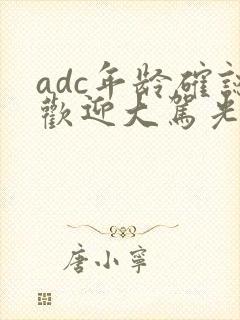 adc年龄確認
歡迎大駕光
唐小寧